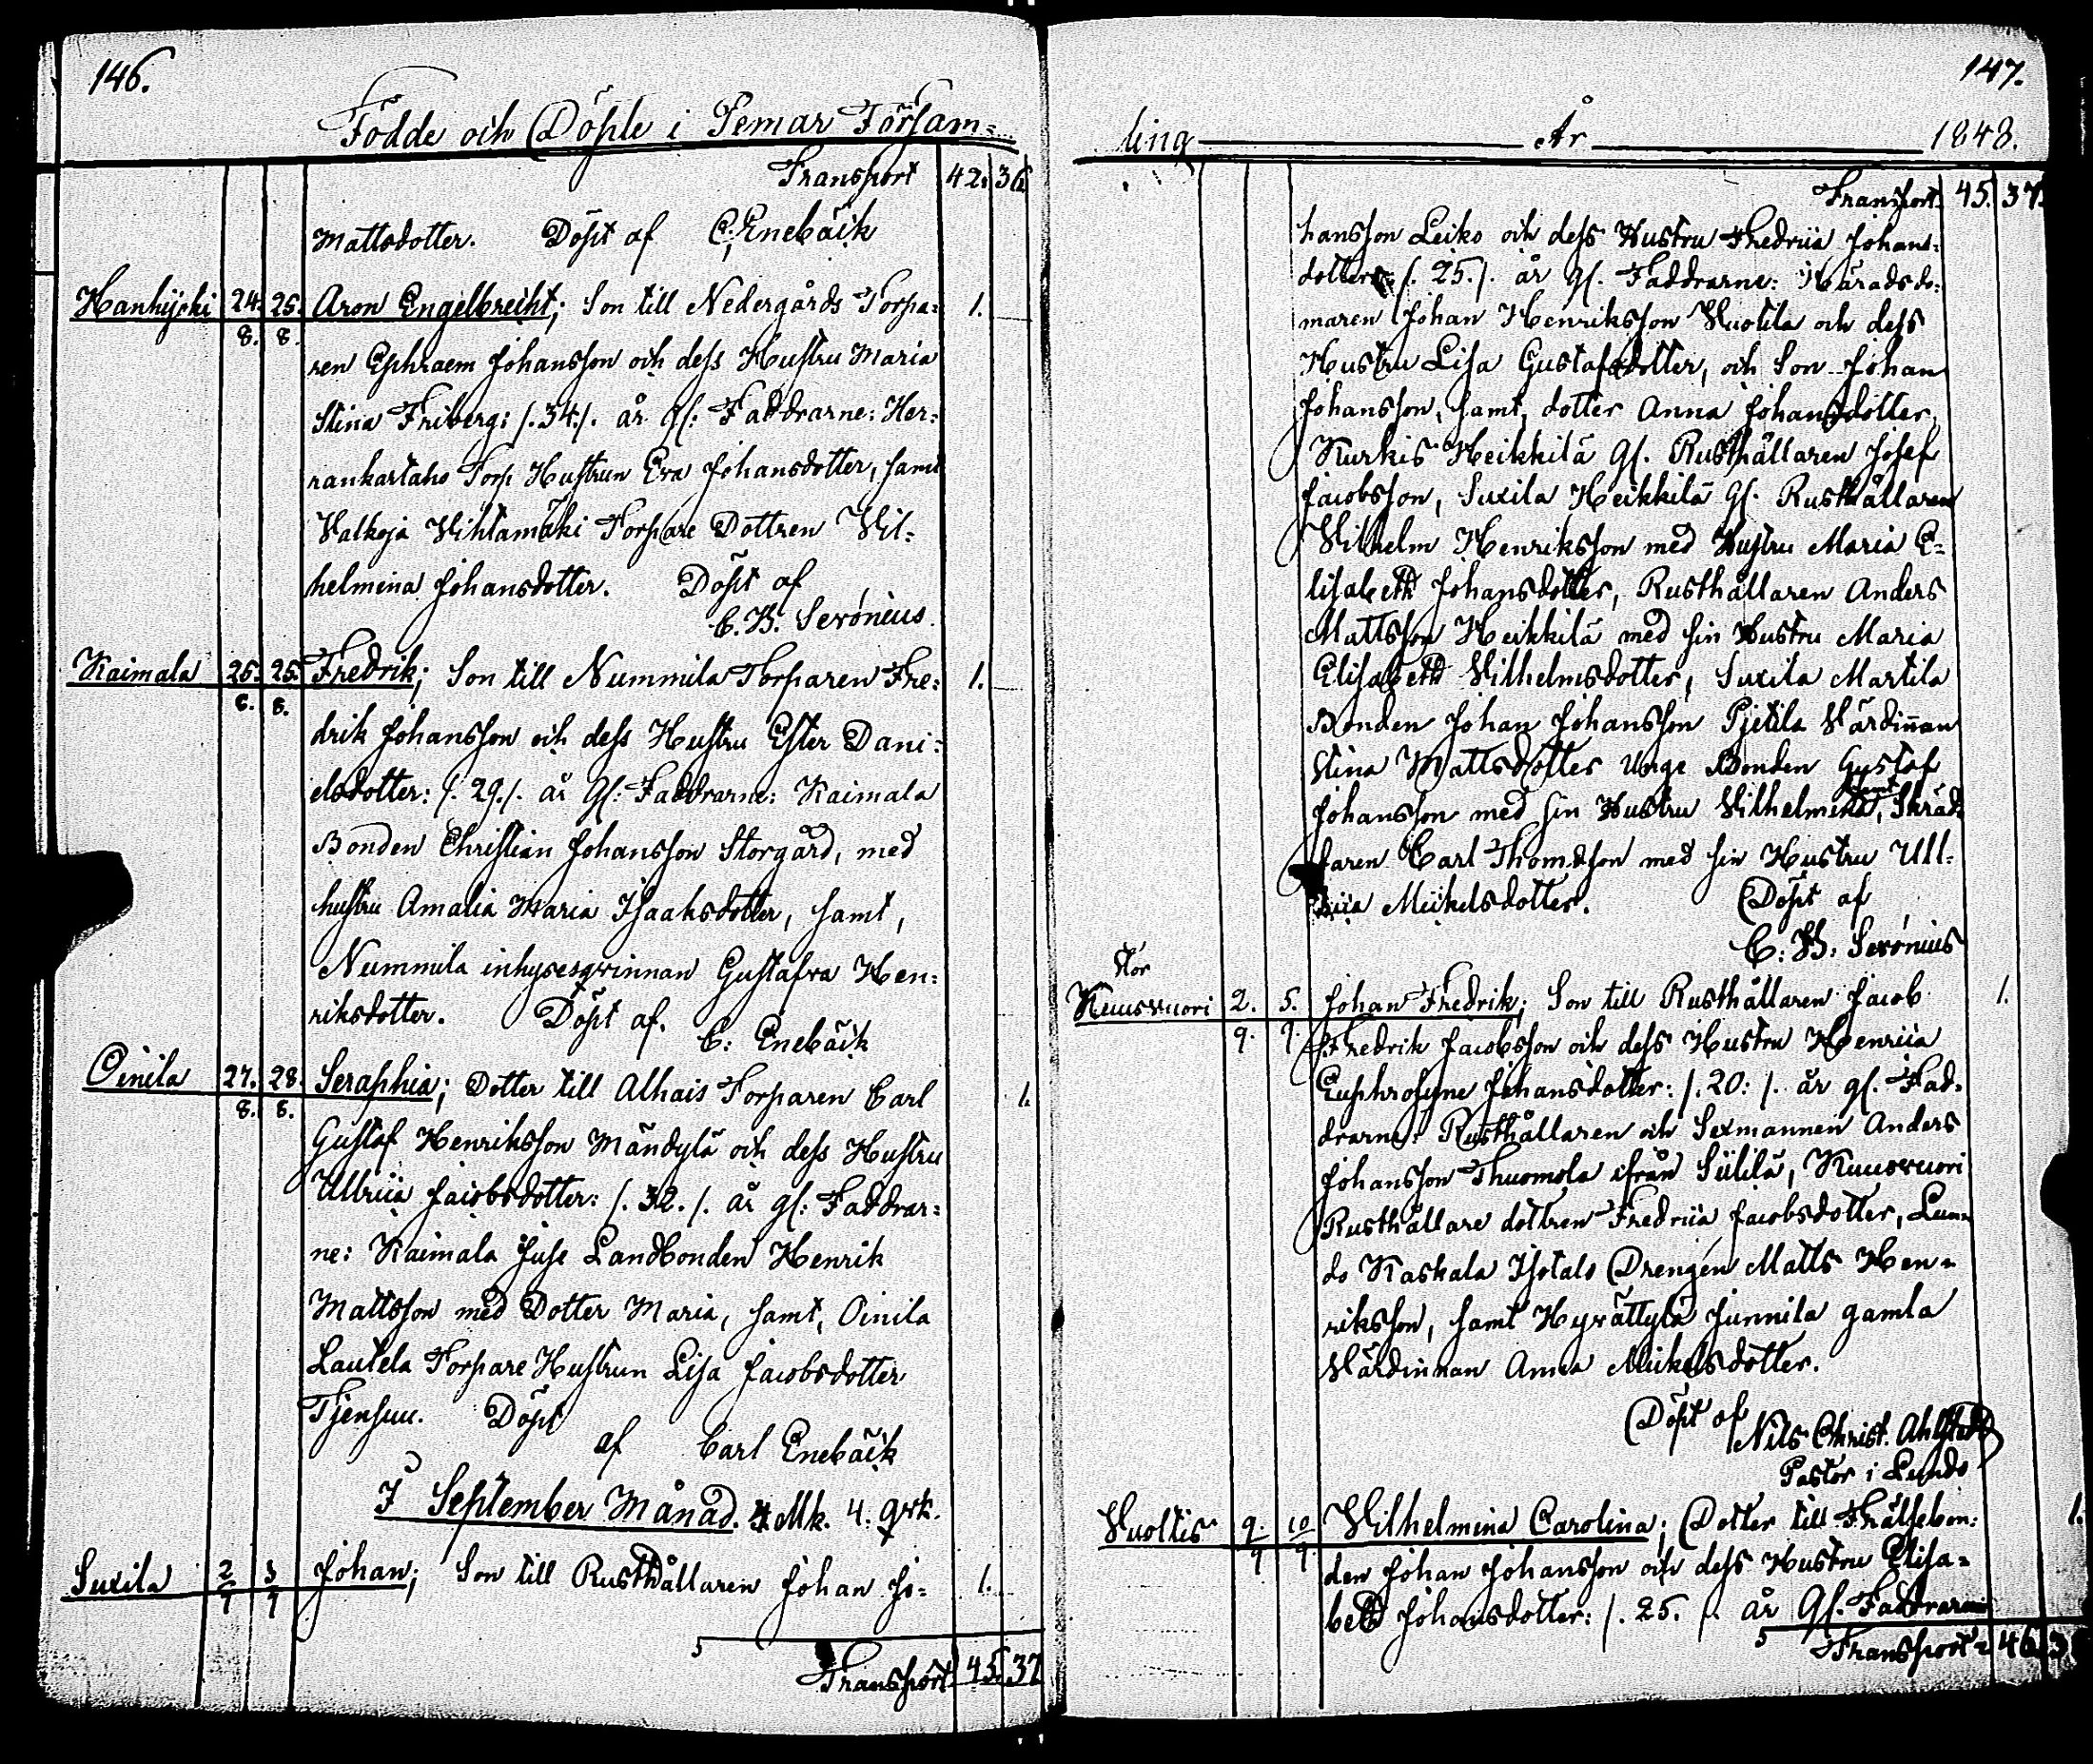 146.
Födde och Döpte i Pemar Försam=
Transport 42. 36
Mattsdotter. Döpt af C. Enebäck
Hanhijoki 24. 25. Aron Engelbrecht; Son till Nedergårds Torpa= 1.
8. 8.
ren Ephraem Johansson och dess Hustru Maria
Stina Friberg: /. 34./. år gl: Faddrarne: Her=
rankartano Torp Hustrun Eva Johansdotter, samt
Valkoja Vihtamäki Torpare Dottren Vil=
helmina Johansdotter. Döpt af
C. H. Serónius.
Kaimala 25. 25. Fredrik; Son till Nummila Torparen Fre= 1.
8. 8.
drik Johansson och dess Hustru Ester Dani=
elsdotter: /. 29./. år gl: Faddrarne: Kaimala
Bonden Christian Johansson Storgård, med
hustru Amalia Maria Isaaksdotter, samt,
Nummila inhysesqvinnan Gustafva Hen=
riksdotter. Döpt af.
C: Enebäck
Oinila 27. 28. Seraphia; Dotter till Alhais Torparen Carl 1.
8. 8.
Gustaf Henriksson Mändylä och dess Hustru
Ullrica Jacobsdotter: /. 32. /. år gl: Faddrar=
ne: Kaimala Juse Landbonden Henrik
Mattsson med Dotter Maria, samt, Oinila
Lautela Torpare Hustrun Lisa Jacobsdotter
Tjensuu. Döpt
af Carl Enebäck
I September Månad. 4 Mk. 4: qvk.
Suxila 2 3 Johan; Son till Rusthållaren Johan Jo= 1.
9 9
5
Transport 45. 37
147.
ling År 1848.
Transport. 45. 37.
hansson Leiko och dess Hustru Fredrica Johans=
dotter: /. 25./. år gl. Faddrarne: Häradsdo=
maren Johan Henriksson Vuotila och dess
Hustru Lisa Gustafsdotter, och Son Johan
Johansson, samt, dotter Anna Johansdotter,
Kurkis Heikkilä gl. Rusthållaren Josef
Jacobsson, Suxila Heikkilä gl. Rusthållaren
Vilhelm Henriksson med Hustru Maria E=
lisabeth Johansdotter, Rusthållaren Anders
Mattsson Heikkilä med sin Hustru Maria
Elisabeth Vilhelmsdotter, Suxila Martila
Bonden Johan Johansson Pjetila Värdinnan
Stina Mattsdotter Unge Bonden Gustaf
samt
Johansson med sin Hustru Vilhelmina, Skräd=
daren Carl Thomasson med sin Hustru Ull=
rica Mickelsdotter. Döpt af
C: H: Serónius
Stor
Kuusvuori 2. 5. Johan Fredrik; Son till Rusthållaren Jacob 1.
9. 9.
Fredrik Jacobsson och dess Hustru Henrica
Euphrosyne Johansdotter: /. 20: /. år gl. Fad=
drarne: Rusthållaren och Sexmannen Anders
Johansson Thuomola ifrån Sülilä, Kuusvuori
Rusthållare dottren Fredrica Jacobsdotter, Lun=
do Kaskala Isotalo Drengen Matts Hen=
riksson, samt Hyvättylä Junnila gamla
Värdinnan Anna Mickelsdotter.
Döpt af
Nils Christ. Ahlstedt
Pastor i Lundo
Vuoltis 9. 10 Wilhelmina Carolina; Dotter till Frälsebon= 1.
9 9.
den Johan Johansson och dess Hustru Elisa=
beth Johansdotter: /. 25. /. år gl. Faddrarne
5
Transport 46.